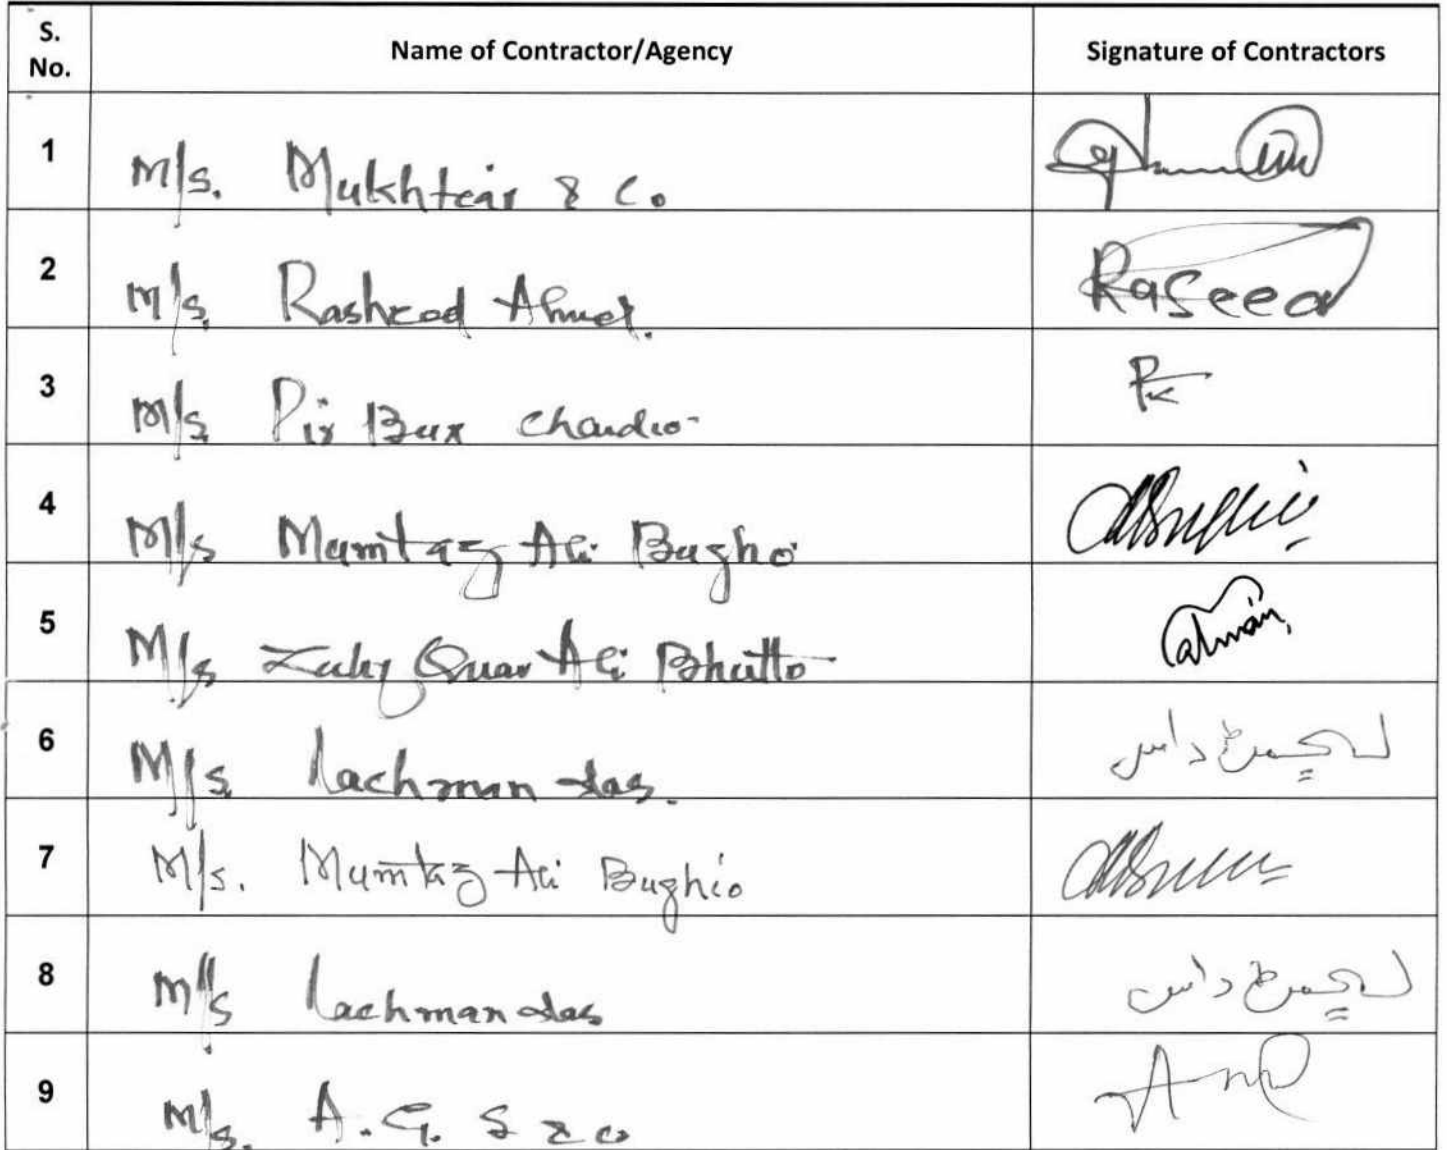 S. No. Name of Contractor/Agency Signature of Contractors
1 M/s. Mukhtiar & Co
2 M/s. Rasheed Ahmed. Raseed
3 M/s. Pir Bux Chandio PK
4 M/s Mumtaz Ali Bugho
5 M/s Zulfiquar Ali Bhutto
6 M/s. lachman das. لڇمڻ داس
7 M/s. Mumtaz Ali Bughio
8 M/s lachman das لڇمڻ داس
9 M/s. A. G.